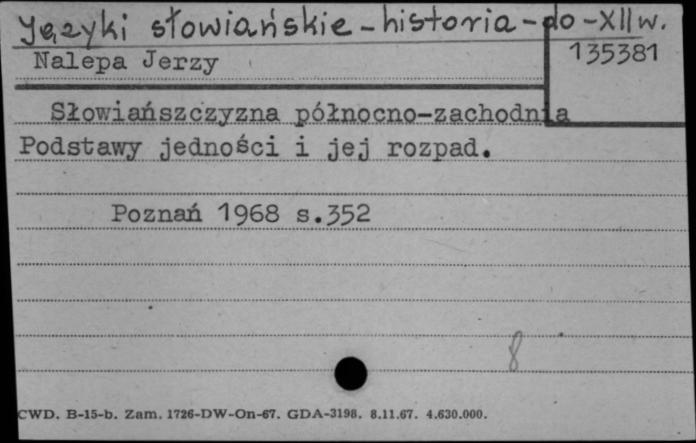 Języki słowiańskie - historia - do - XII w.
Nalepa Jerzy
135381
Słowiańszczyzna północno-zachodnia
Podstawy jedności i jej rozpad.
Poznań 1968 s.352
8
CWD. B-15-b. Zam. 1726-DW-On-67. GDA-3198. 8.11.67. 4.630.000.